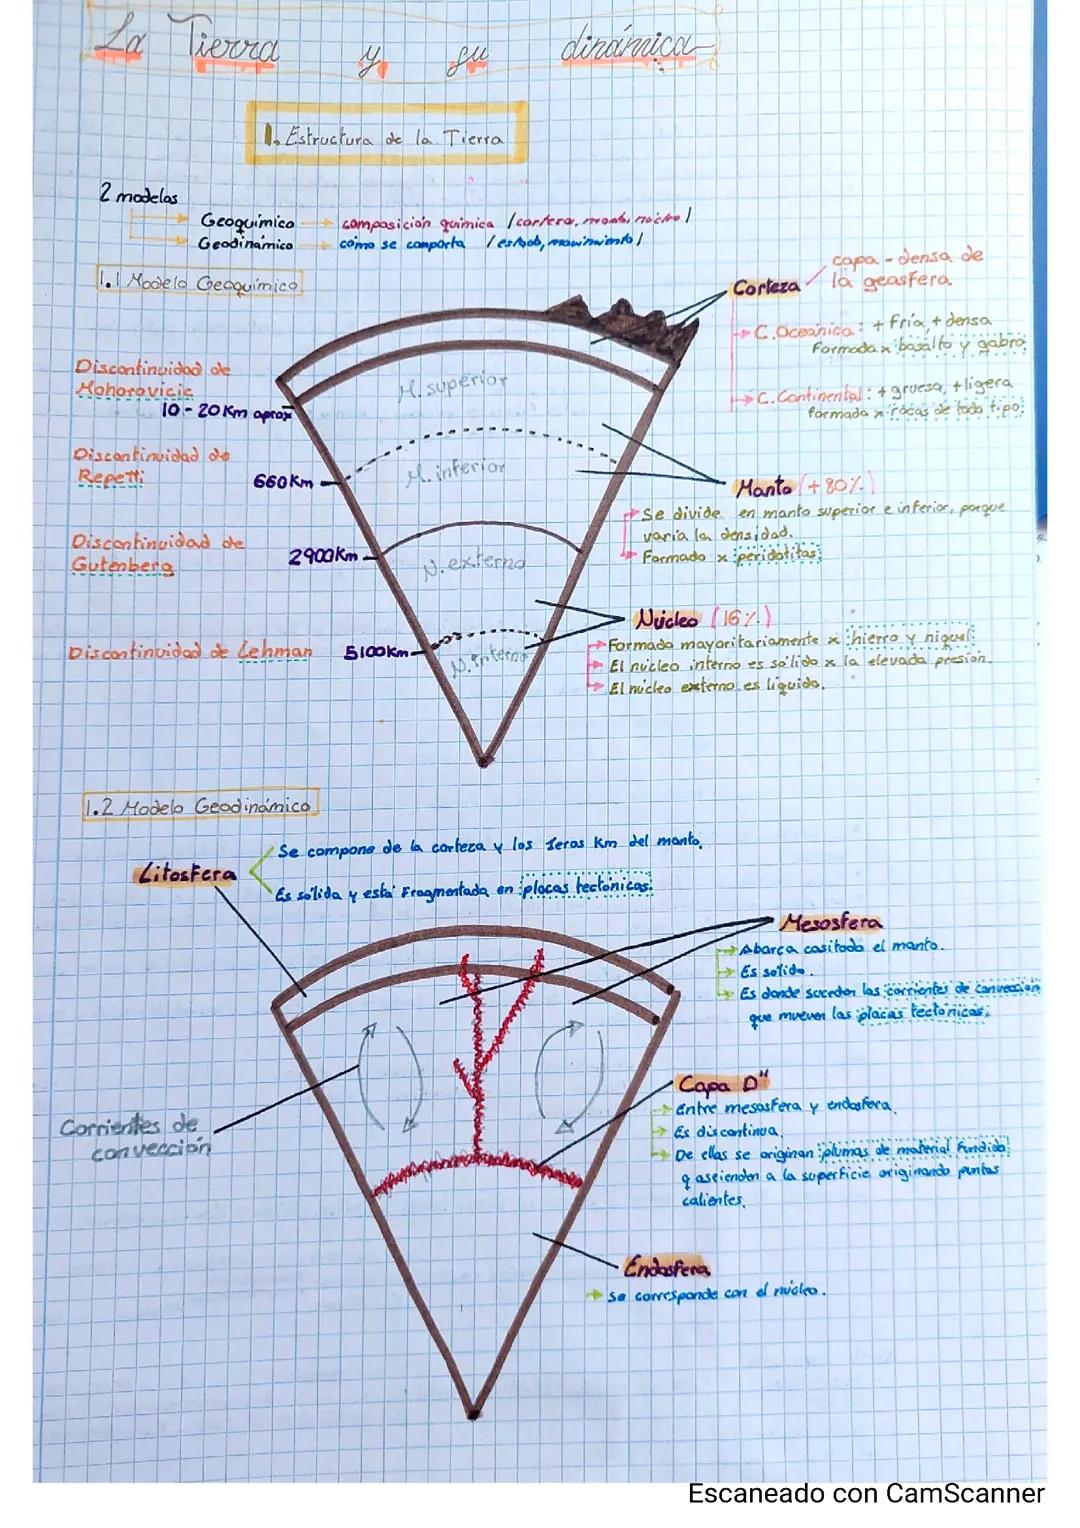 La Tierra y su dinámica
1. Estructura de la Tierra
2 modelos
Geoquímico → composición química / corteza, manto, núcleo /
Geodinámico → cómo se comporta / estado, movimiento /
1.1 Modelo Geoquímico
Corteza
capa - densa de
la geosfera
C. Oceánica: + fría, + densa
Formada x basalto y gabro
C. Continental: + gruesa, + ligera
formada x rocas de todo tipo.
Discontinuidad de
Mohorovicic
10 - 20 Km aprox
M. superior
Discontinuidad de
Repetti
660 Km
M. inferior
Manto (+ 80%)
Se divide en manto superior e inferior, porque
varía la densidad.
Formado x peridotitas
Discontinuidad de
Gutenberg
2900 Km
N. externo
Núcleo (16%)
Formado mayoritariamente x hierro y níquel
El núcleo interno es sólido x la elevada presión.
El núcleo externo es líquido.
Discontinuidad de Lehman
5100 Km
N. interno
1.2 Modelo Geodinámico
Litosfera
Se compone de la corteza y los 1eros Km del manto.
Es sólida y está Fragmentada en placas tectónicas.
Mesosfera
Abarca casi todo el manto.
Es solido.
Es donde suceden las corrientes de convección
que mueven las placas tectónicas.
Capa D"
Entre mesosfera y endosfera.
Es discontinua.
De ellas se originan plumas de material fundido
q ascienden a la superficie originando puntos
calientes.
Corrientes de
convección
Endosfera
Se corresponde con el núcleo.
Escaneado con CamScanner